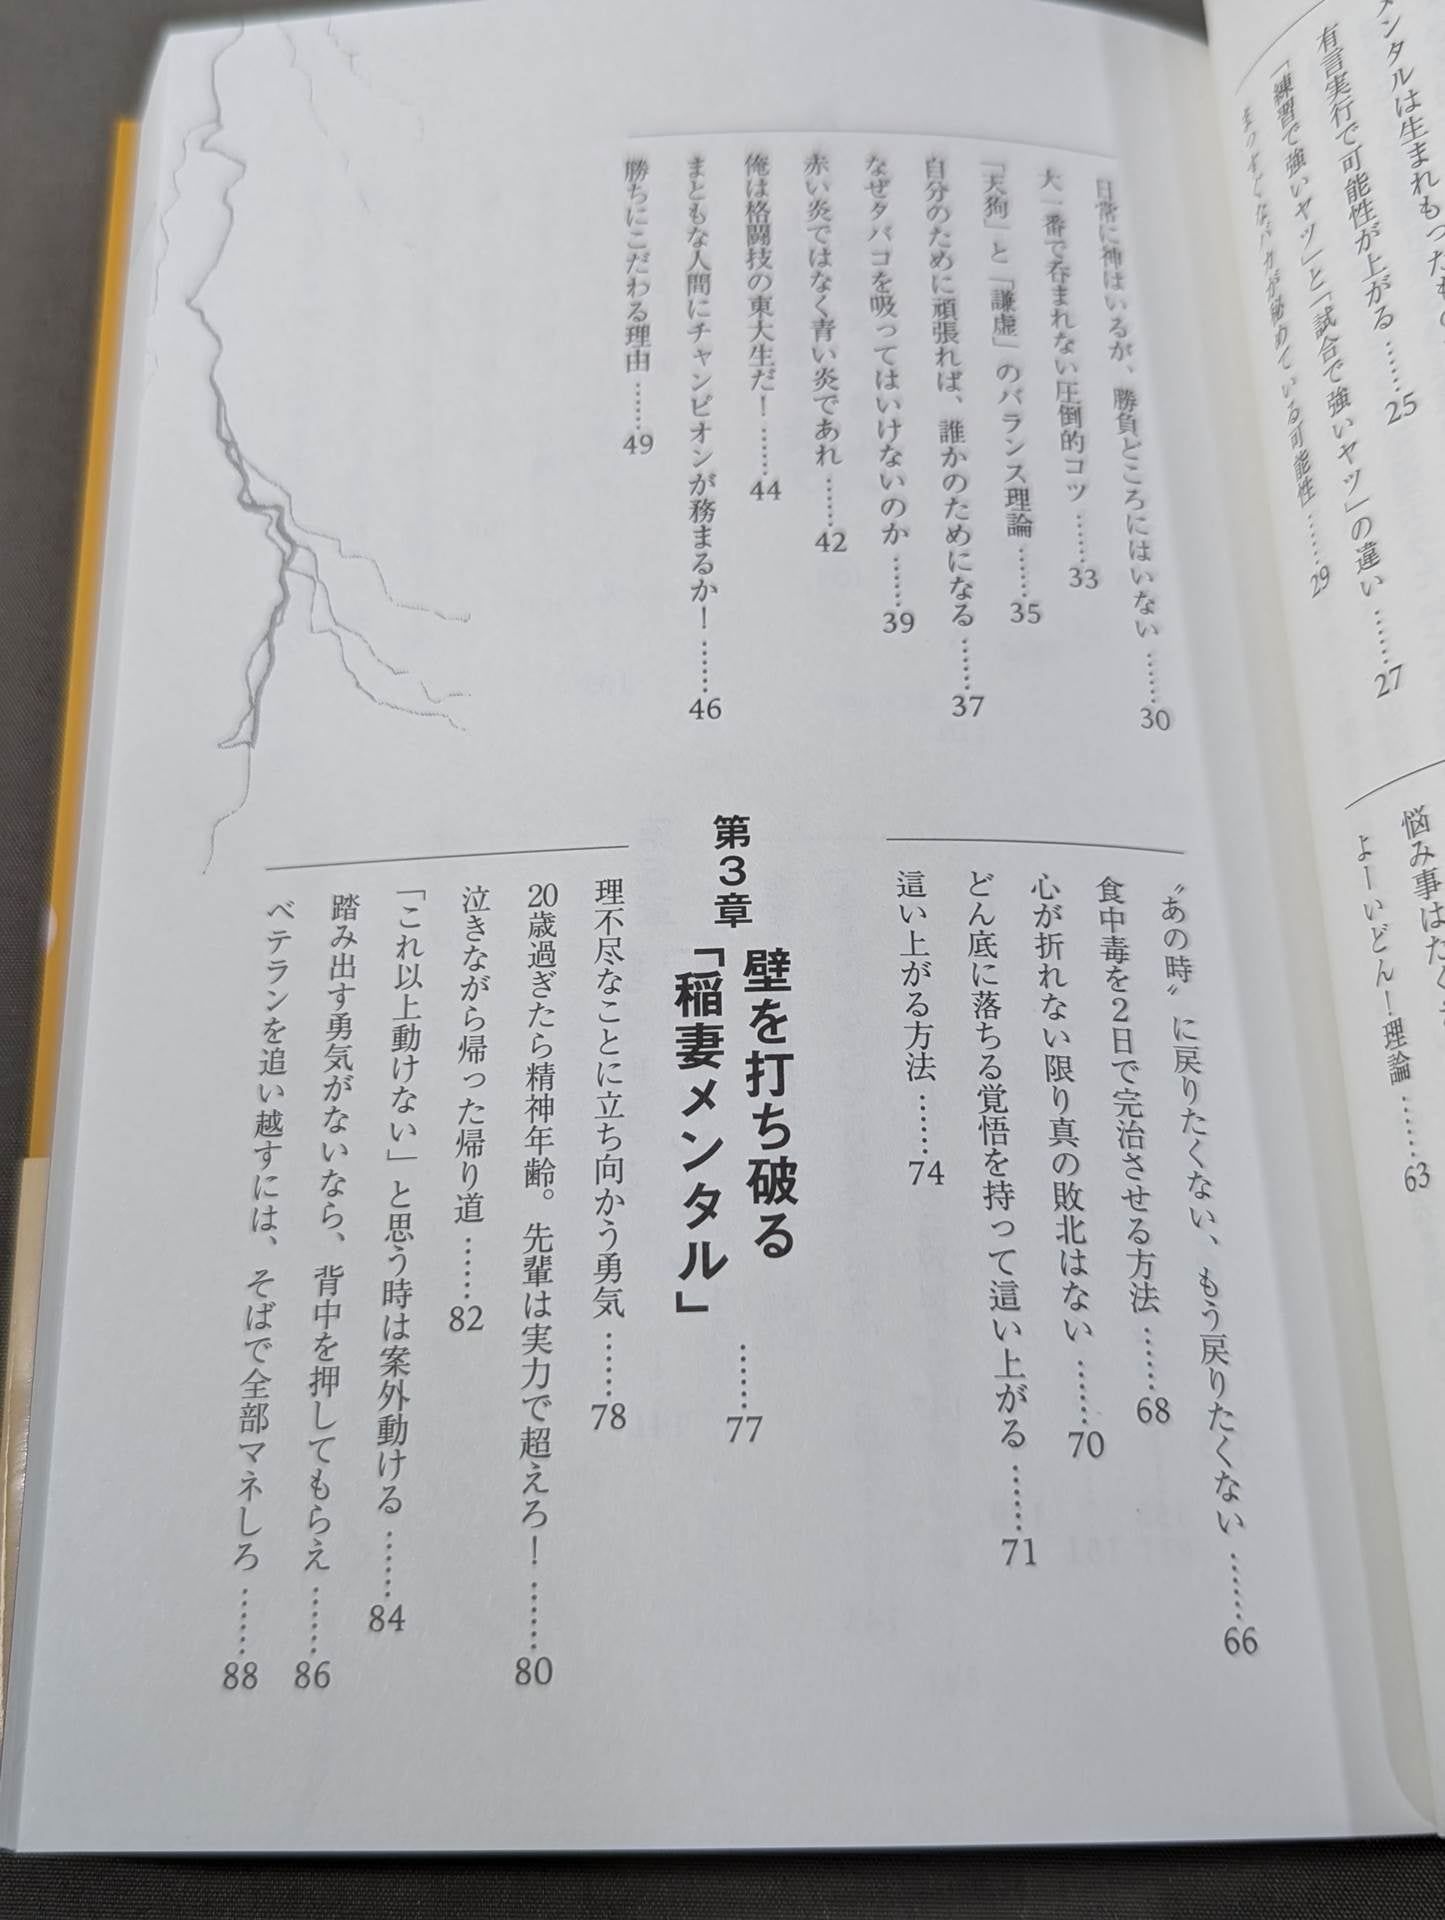 有言実行で可能性が上がる……25
「練習で強いヤツ」と「試合で強いヤツ」の違い……27
が秘めている可能性……29
よーいどん！理論……63
日常に神はいるが、勝負どころにはいない……30
大一番で呑まれない圧倒的コツ……33
「天狗」と「謙虚」のバランス理論……35
自分のために頑張れば、誰かのためになる……37
なぜタバコを吸ってはいけないのか……39
赤い炎ではなく青い炎であれ……42
俺は格闘技の東大生だ！……44
まともな人間にチャンピオンが務まるか！……46
勝ちにこだわる理由……49
〝あの時〟に戻りたくない、もう戻りたくない……66
食中毒を2日で完治させる方法……68
心が折れない限り真の敗北はない……70
どん底に落ちる覚悟を持って這い上がる……71
這い上がる方法……74
第3章 壁を打ち破る
「稲妻メンタル」……77
理不尽なことに立ち向かう勇気……78
20歳過ぎたら精神年齢。先輩は実力で超えろ！……80
泣きながら帰った帰り道……82
「これ以上動けない」と思う時は案外動ける……84
踏み出す勇気がないなら、背中を押してもらえ……86
ベテランを追い越すには、そばで全部マネしろ……88